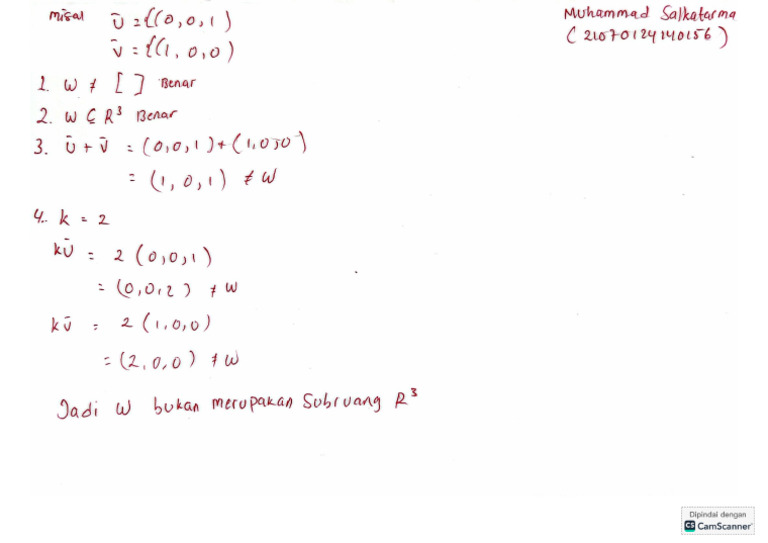 Muhammad Salkatarma
(21070124140156)
misal ū = {(0,0,1)
v̄ = {(1,0,0)
1. W ≠ [ ] Benar
2. W ⊆ R³ Benar
3. ū + v̄ = (0,0,1) + (1,0,0)
= (1,0,1) ≠ W
4. k = 2
kū = 2 (0,0,1)
= (0,0,2) ≠ W
kū = 2 (1,0,0)
= (2,0,0) ≠ W
Jadi W bukan merupakan Subruang R³
Dipindai dengan
CS CamScanner